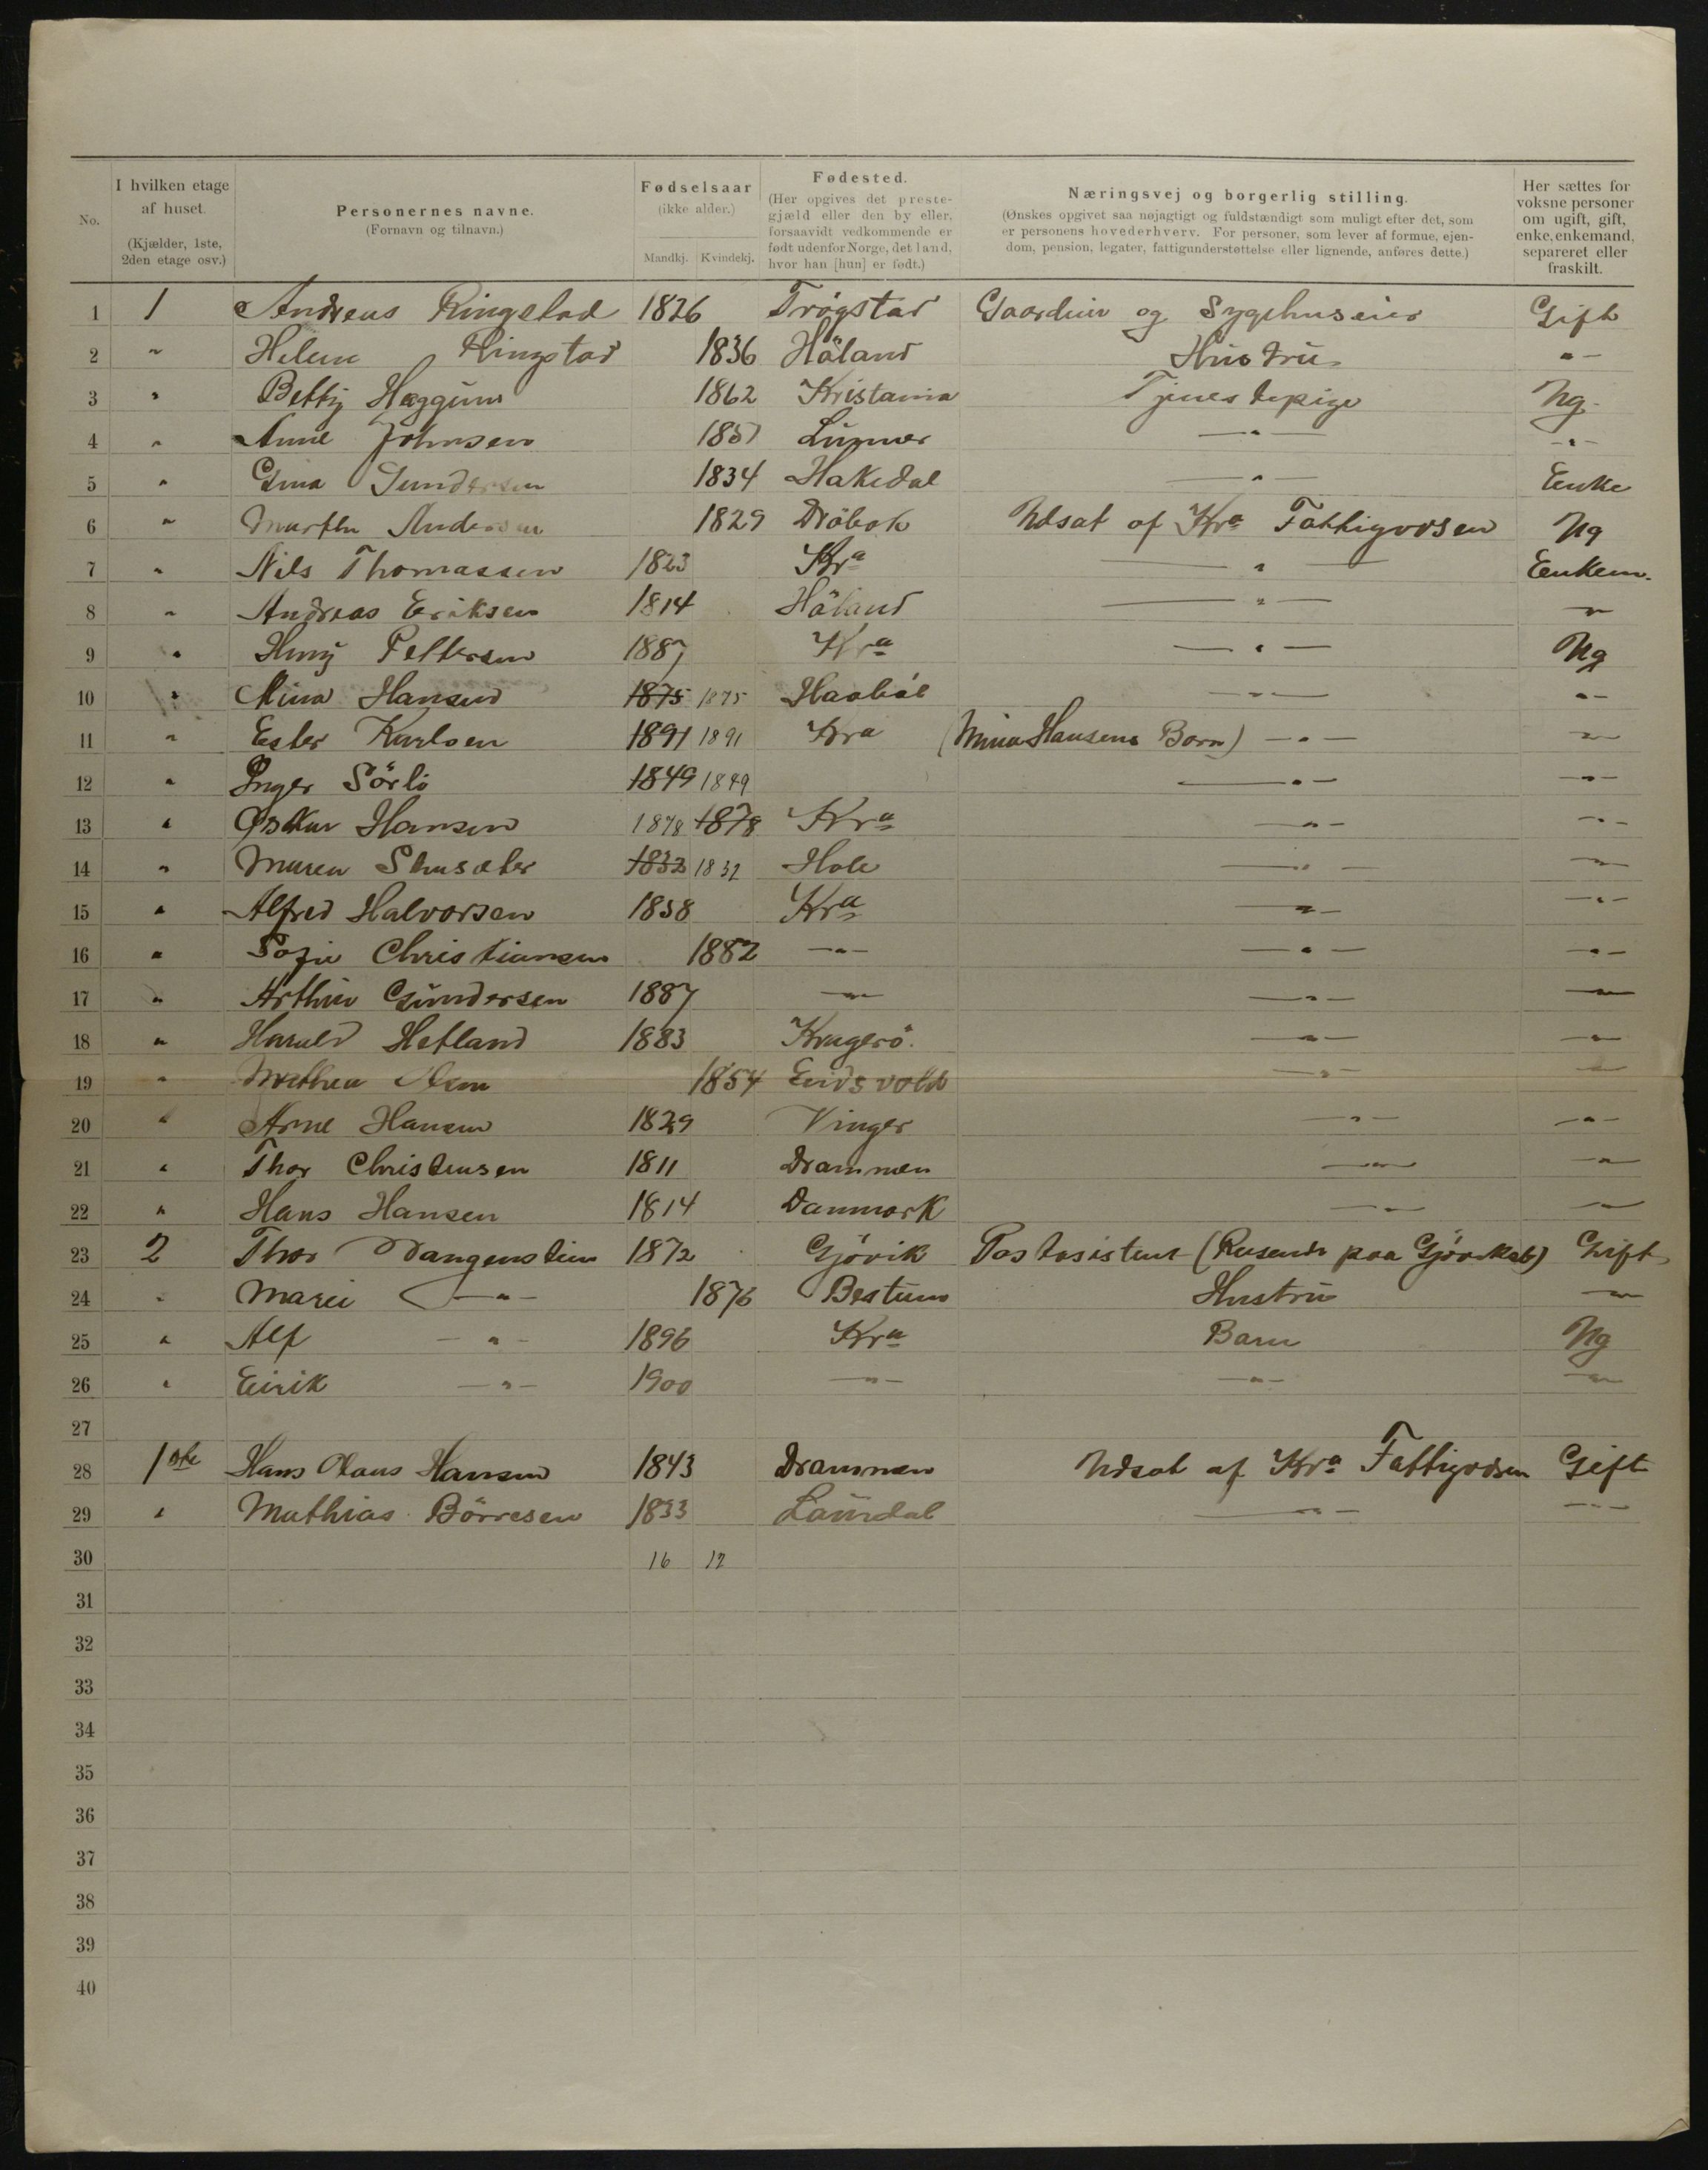 No.
I hvilken etage af huset. (Kjælder, 1ste, 2den etage osv.)
Personernes navne. (Fornavn og tilnavn.)
Fødselsaar (ikke alder.) Mandkj. Kvindekj.
Fødested. (Her opgives det prestegjæld eller den by eller, forsaavidt vedkommende er født udenfor Norge, det land, hvor han [hun] er født.)
Næringsvej og borgerlig stilling. (Ønskes opgivet saa nøjagtigt og fuldstændigt som muligt efter det, som er personens hovederhverv. For personer, som lever af formue, ejendom, pension, legater, fattigunderstøttelse eller lignende, anføres dette.)
Her sættes for voksne personer om ugift, gift, enke, enkemand, separeret eller fraskilt.
1 1 Andreas Ringstad 1826 Trøgstad Gaardeier og Sygehuseier Gift
2 " Helene Ringstad 1836 Höland Hustru -"-
3 " Betty Haggum 1862 Kristania Tjenestepige Ug.
4 " Anne Johnsen 185 Lunner -"- -"-
5 " Gina Gundersen 1834 Hakedal -"- Enke
6 " Marthe Andersen 1829 Dröbak Udsat af Kra Fattigvæsen Ug
7 " Nils Thomassen 1823 Kra -"- Enkem.
8 " Andreas Eriksen 1814 Höland -"- -"-
9 " Pettersen 1887 Kra -"- Ug
10 " Mina Hansen 1875 1875 Haaböl -"- -"-
11 " Ester Karlsen 1891 1891 Kra (Mina Hansens Barn) -"- -"-
12 " Inger Sörli 1849 1849 -"- -"-
13 " Oskar Hansen 1878 1878 Kra -"- -"-
14 " Maren 1832 1832 Hole -"- -"-
15 " Alfred Halvorsen 1858 Kra -"- -"-
16 " Sofie Christiansen 1882 -"- -"- -"-
17 " Arthur Gundersen 1887 -"- -"- -"-
18 " Harald Hetland 1883 Kragerö. -"- -"-
19 " Mathea Olsen 1854 Eidsvold -"- -"-
20 " Arne Hansen 1829 Vinger -"- -"-
21 " Thor Christensen 1811 Drammen -"- -"-
22 " Hans Hansen 1814 Danmark -"- -"-
23 2 Thor Vangenstein 1872 Gjövik Postasistent (Reisende paa Gjöviksb) Gift
24 " Marie -"- 1876 Bestum Hustru -"-
25 " Alf -"- 1896 Kra Barn Ug
26 " Eirik -"- 1900 -"- -"- -"-
27
28 1ste Hans Claus Hansen 1843 Drammen Udsat af Kra Fattigvæsen Gift
29 " Mathias Börresen 1833 Laurdal -"- -"-
30 16 12
31
32
33
34
35
36
37
38
39
40